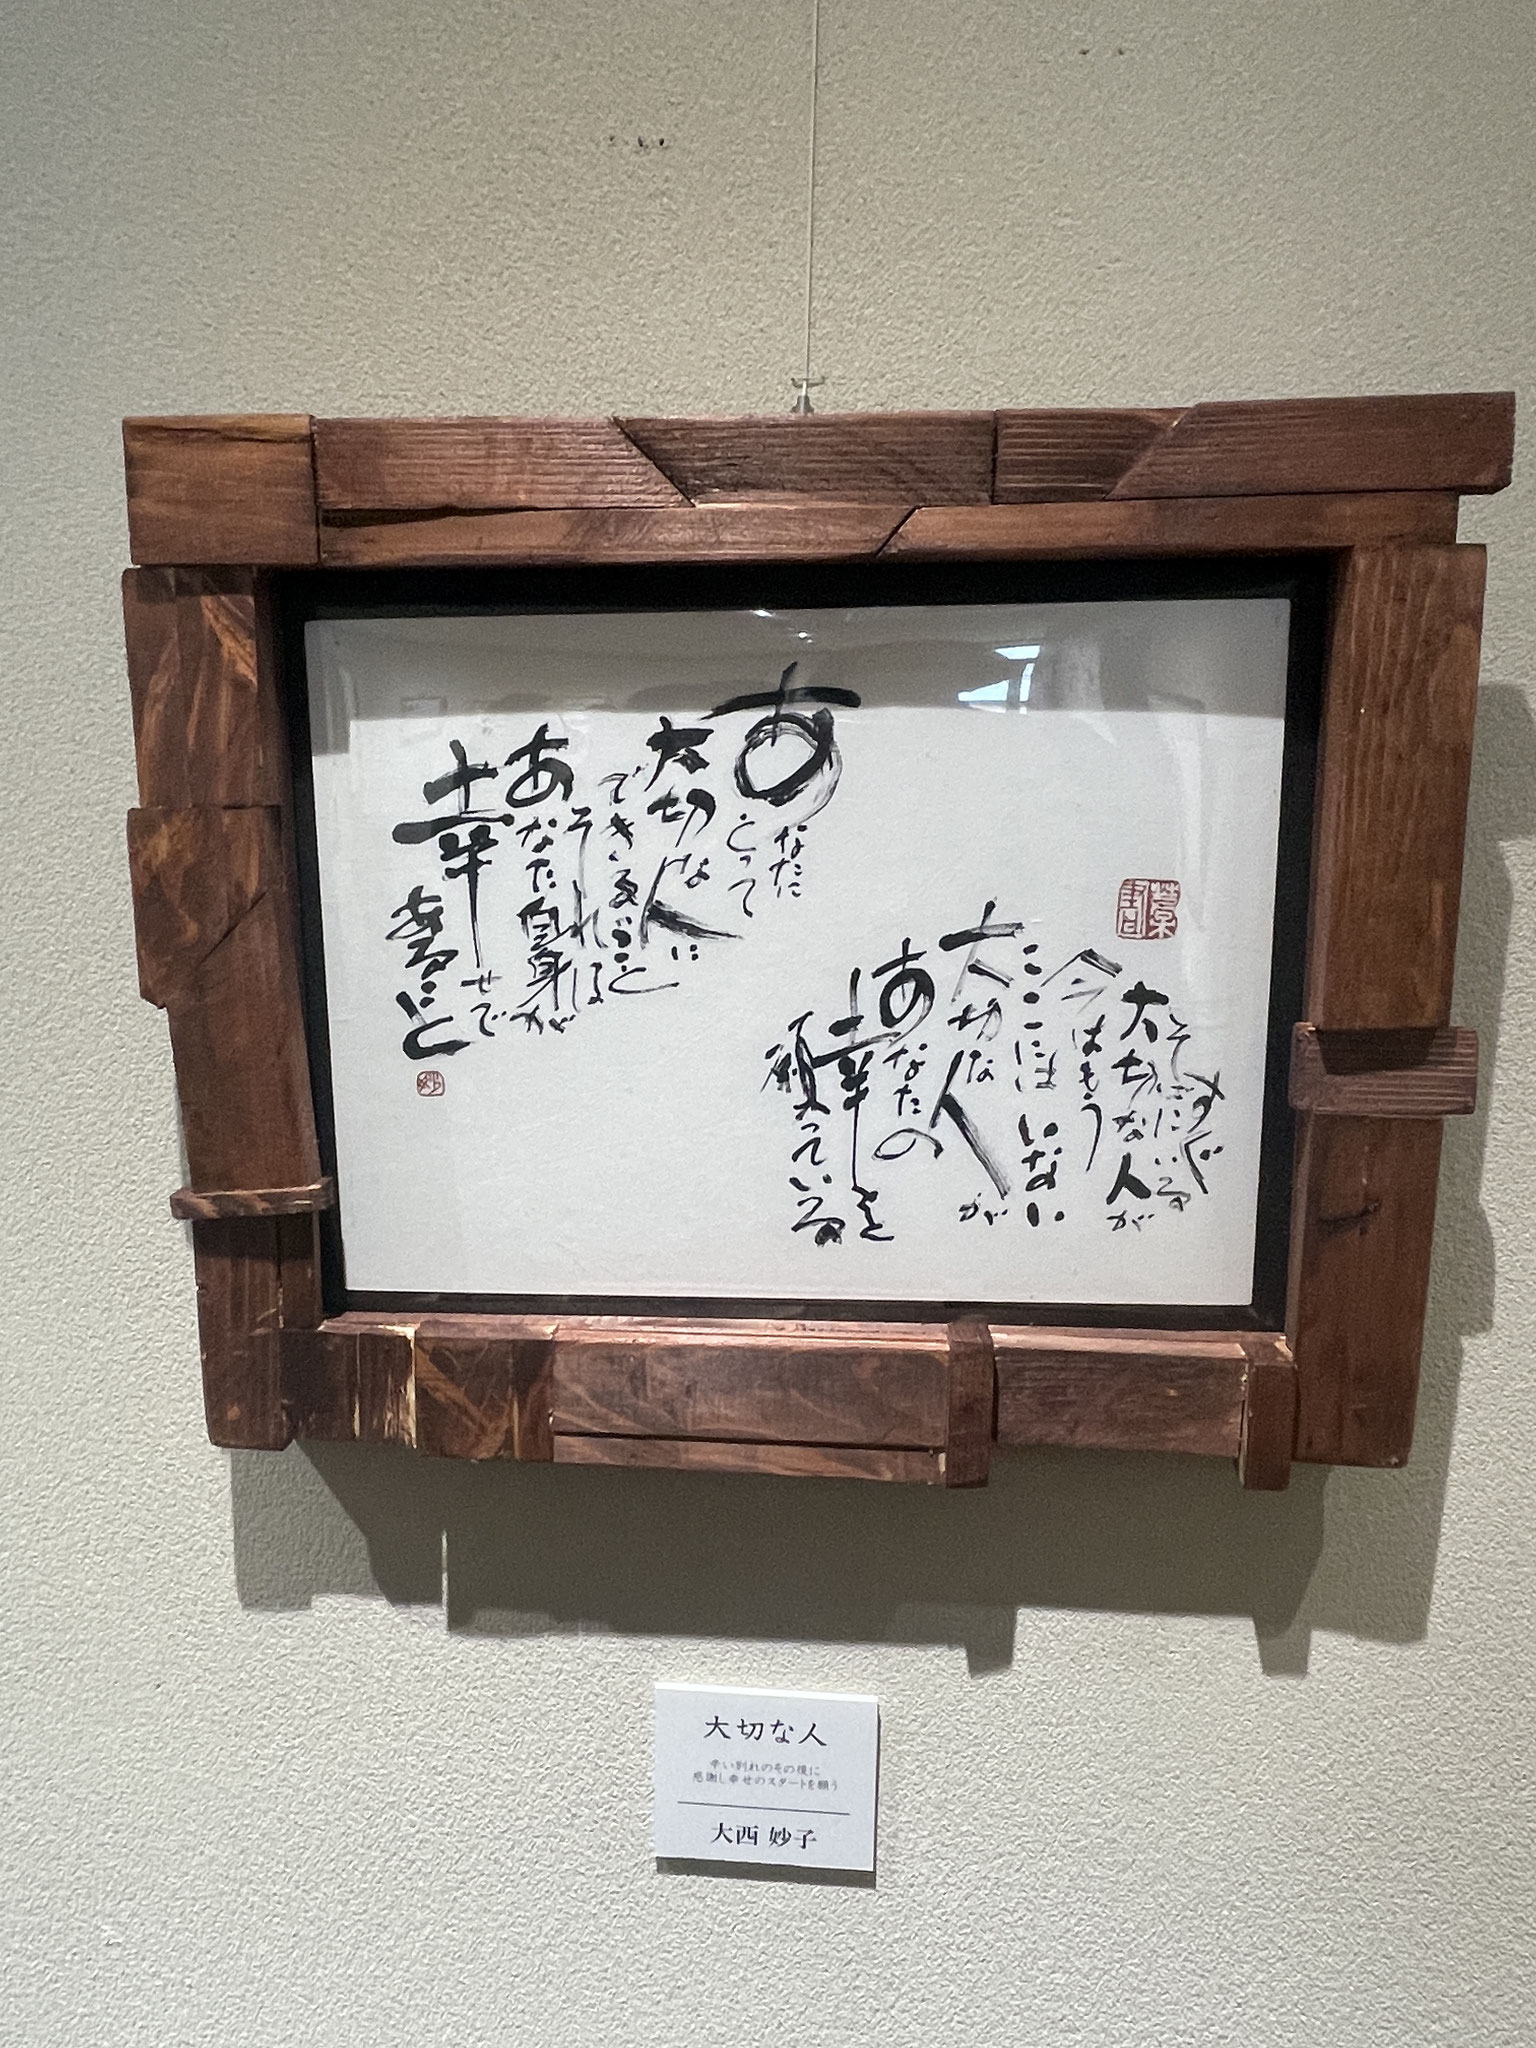 すぐ
そばにいる
大切な人が
今はもう
ここにはいない
大切な人が
あなたの
幸を
願っている
あなたに
とって
大切な人に
できること
それは
あなた自身が
幸せで
あること
妙
大切な人
辛い別れのその後に
感謝し幸せのスタートを願う
大西 妙子